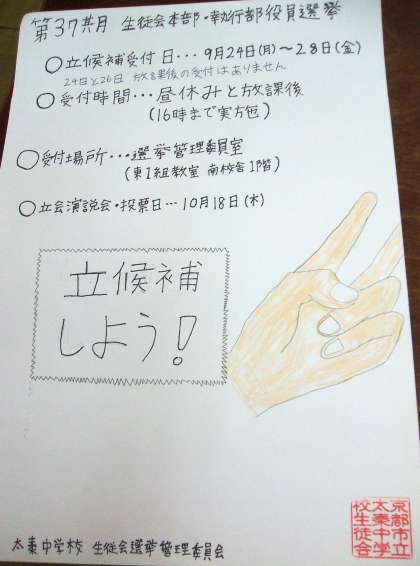 第37期 生徒会本部・執行部役員選挙
○立候補受付日・・・9月24日(月)～28日(金)
24日と26日 放課後の受付はありません
○受付時間・・・昼休みと放課後
(16時まで実施)
○受付場所・・・選挙管理委員室
(東1組教室 南校舎1階)
○立会演説会・投票日・・・10月18日(木)
立候補
しよう!
太秦中学校 生徒会選挙管理委員会
京都市立
太秦中学
校生徒会